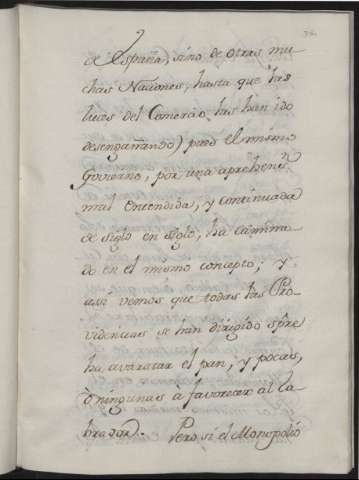 de España, sino de otras mu
chas Naciones, hasta que las
luces del Comercio las han ido
desengañando) pues el mismo
Govierno, por una aprehens.ⁿ
mal entendida, y continuada
de siglo en siglo, ha camina
do en el mismo concepto; y
assi vemos que todas las Pro-
videncias se han dirigido sp̃re
ha avaratar el pan, y pocas,
ò ningunas a favorecer al la-
brador. Pero si el Monopolio